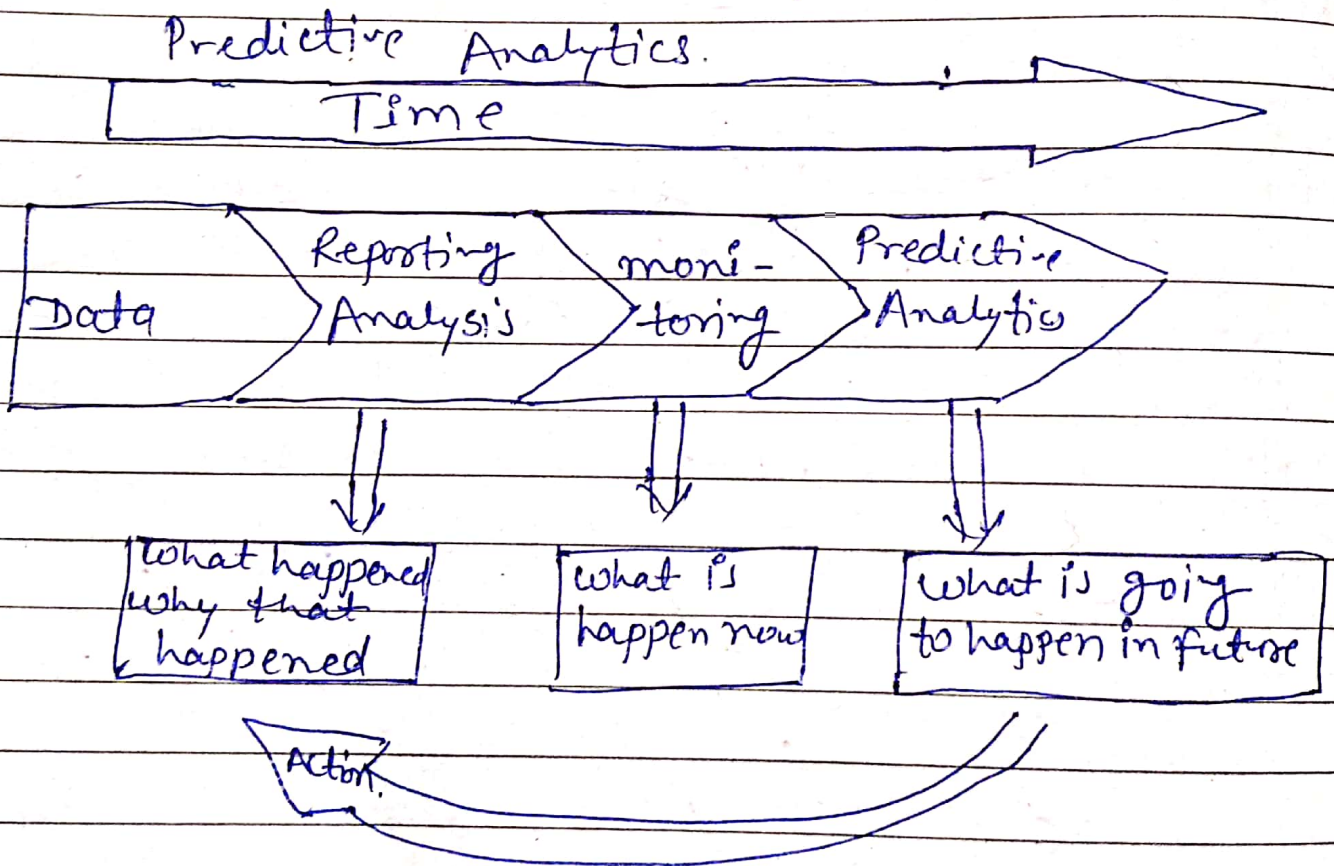 Predictive Analytics.
Time
Data
Reporting
Analysis
moni-
toring
Predictive
Analytics
What happened
why that
happened
what is
happen now
what is goig
to happen in future
Action.